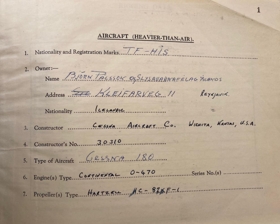 1
AIRCRAFT (HEAVIER-THAN-AIR).
1. Nationality and Registration Marks. TF-HIS
2. Owner:—
Name BJÖRN PÁLSSON og SLYSAVARNAFÉLAG ÍSLANDS
Address KLEIFARVEG 11 Reykjavik
Nationality ICELANDIC
3. Constructor CESSNA AIRCRAFT Co. WICHITA, KANSAS, U.S.A.
4. Constructor's No. 30310
5. Type of Aircraft CESSNA 180
6. Engine(s) Type CONTINENTAL O-470 Series No.(s)
7. Propeller(s) Type HARTZELL HC-